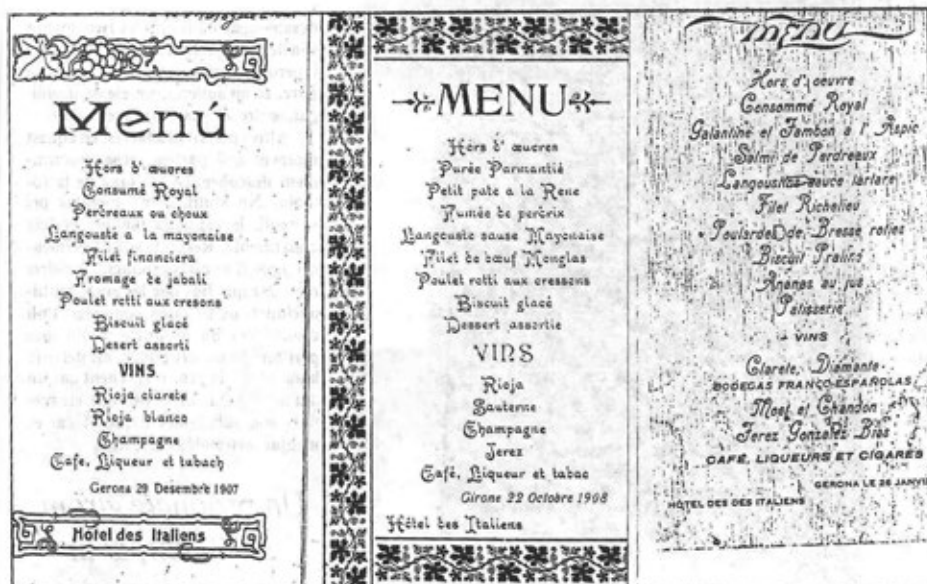 Menú
Hors d' œuvres
Consumé Royal
Perdreaux ou choux
Langousté a la mayonaise
Filet financiera
Fromage de jabali
Poulet rotti aux cresons
Biscuit glacé
Desert assorti
VINS
Rioja clarete
Rioja blanco
Champagne
Cafe, Liqueur et tabach
Gerona 29 Desembre 1907
Hotel des Italiens
MENU
Hors d' œucres
Purée Parmantié
Petit pate a la Rene
Fumée de perdrix
Langouste sause Mayonaise
Filet de bœuf Monglas
Poulet rotti aux cressons
Biscuit glacé
Dessert assortie
VINS
Rioja
Sauterne
Champagne
Jerez
Café, Liqueur et tabac
Girone 22 Octobre 1908
Hótel des Italiens
menu
Hors d' oeuvre
Consommé Royal
Galantine et Jambon a l' Aspic
Salmi de Perdreaux
Langoustine sauce tartare
Filet Richelieu
Poularde de Bresse roties
Biscuit Praliné
Ananas au jus
Patisserie
VINS
Clarete, Diamante
BODEGAS FRANCO-ESPAÑOLAS
Moet et Chandon
Jerez Gonzalez Bias
CAFÉ, LIQUEURS ET CIGARES
GERONA LE 26 JANVI
HOTEL DES DES ITALIENS